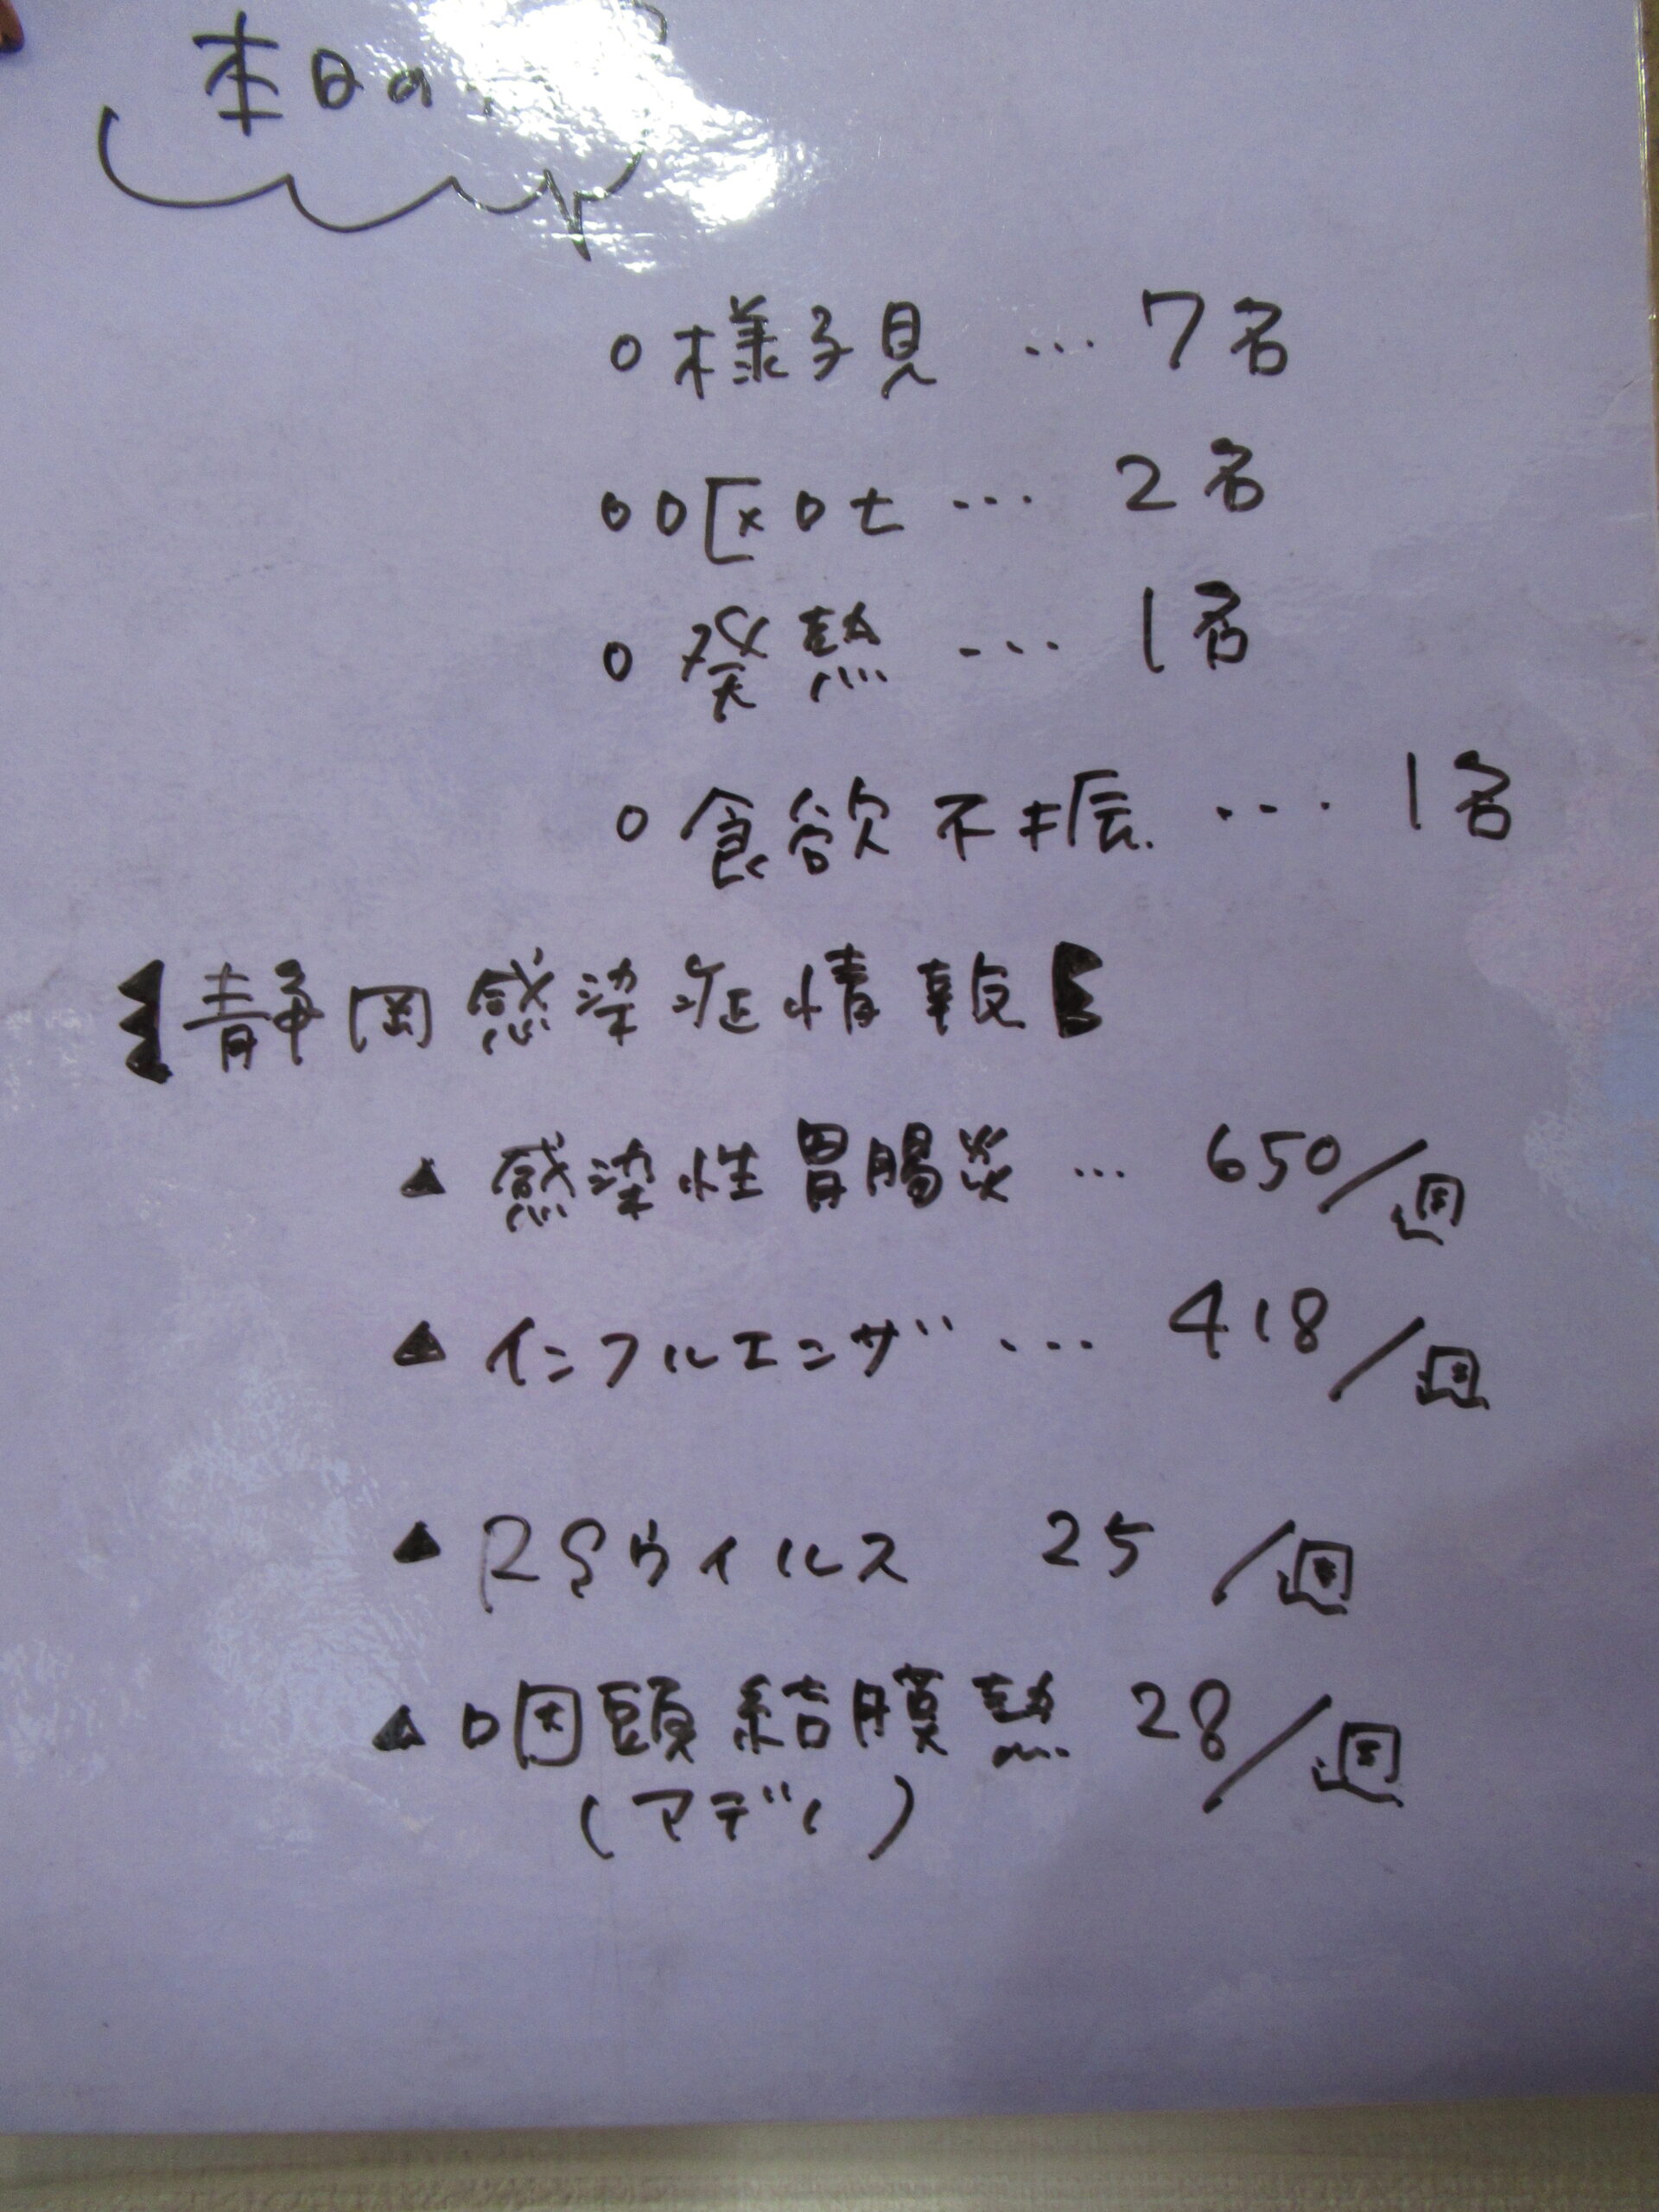 本日の
○様子見 … 7名
○嘔吐 … 2名
○発熱 … 1名
○食欲不振 … 1名
【静岡感染症情報】
▲感染性胃腸炎 … 650/週
▲インフルエンザ … 418/週
▲RSウイルス 25/週
▲咽頭結膜熱 28/週
(アデノ)